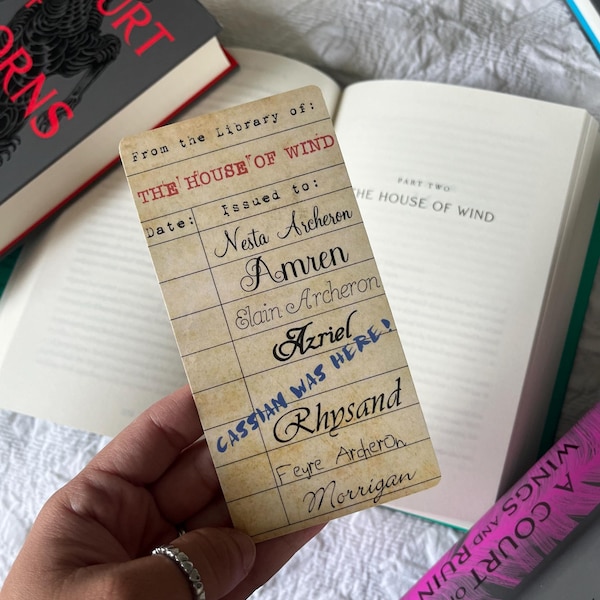 COURT
ORNS
From the Library of:
THE HOUSE OF WIND
Date:
Issued to:
Nesta Archeron
Amren
Elain Archeron
Azriel
CASSIAN WAS HERE!
Rhysand
Feyre Archeron
Morrigan
PART TWO
THE HOUSE OF WIND
A COURT OF
WINGS AND RUIN